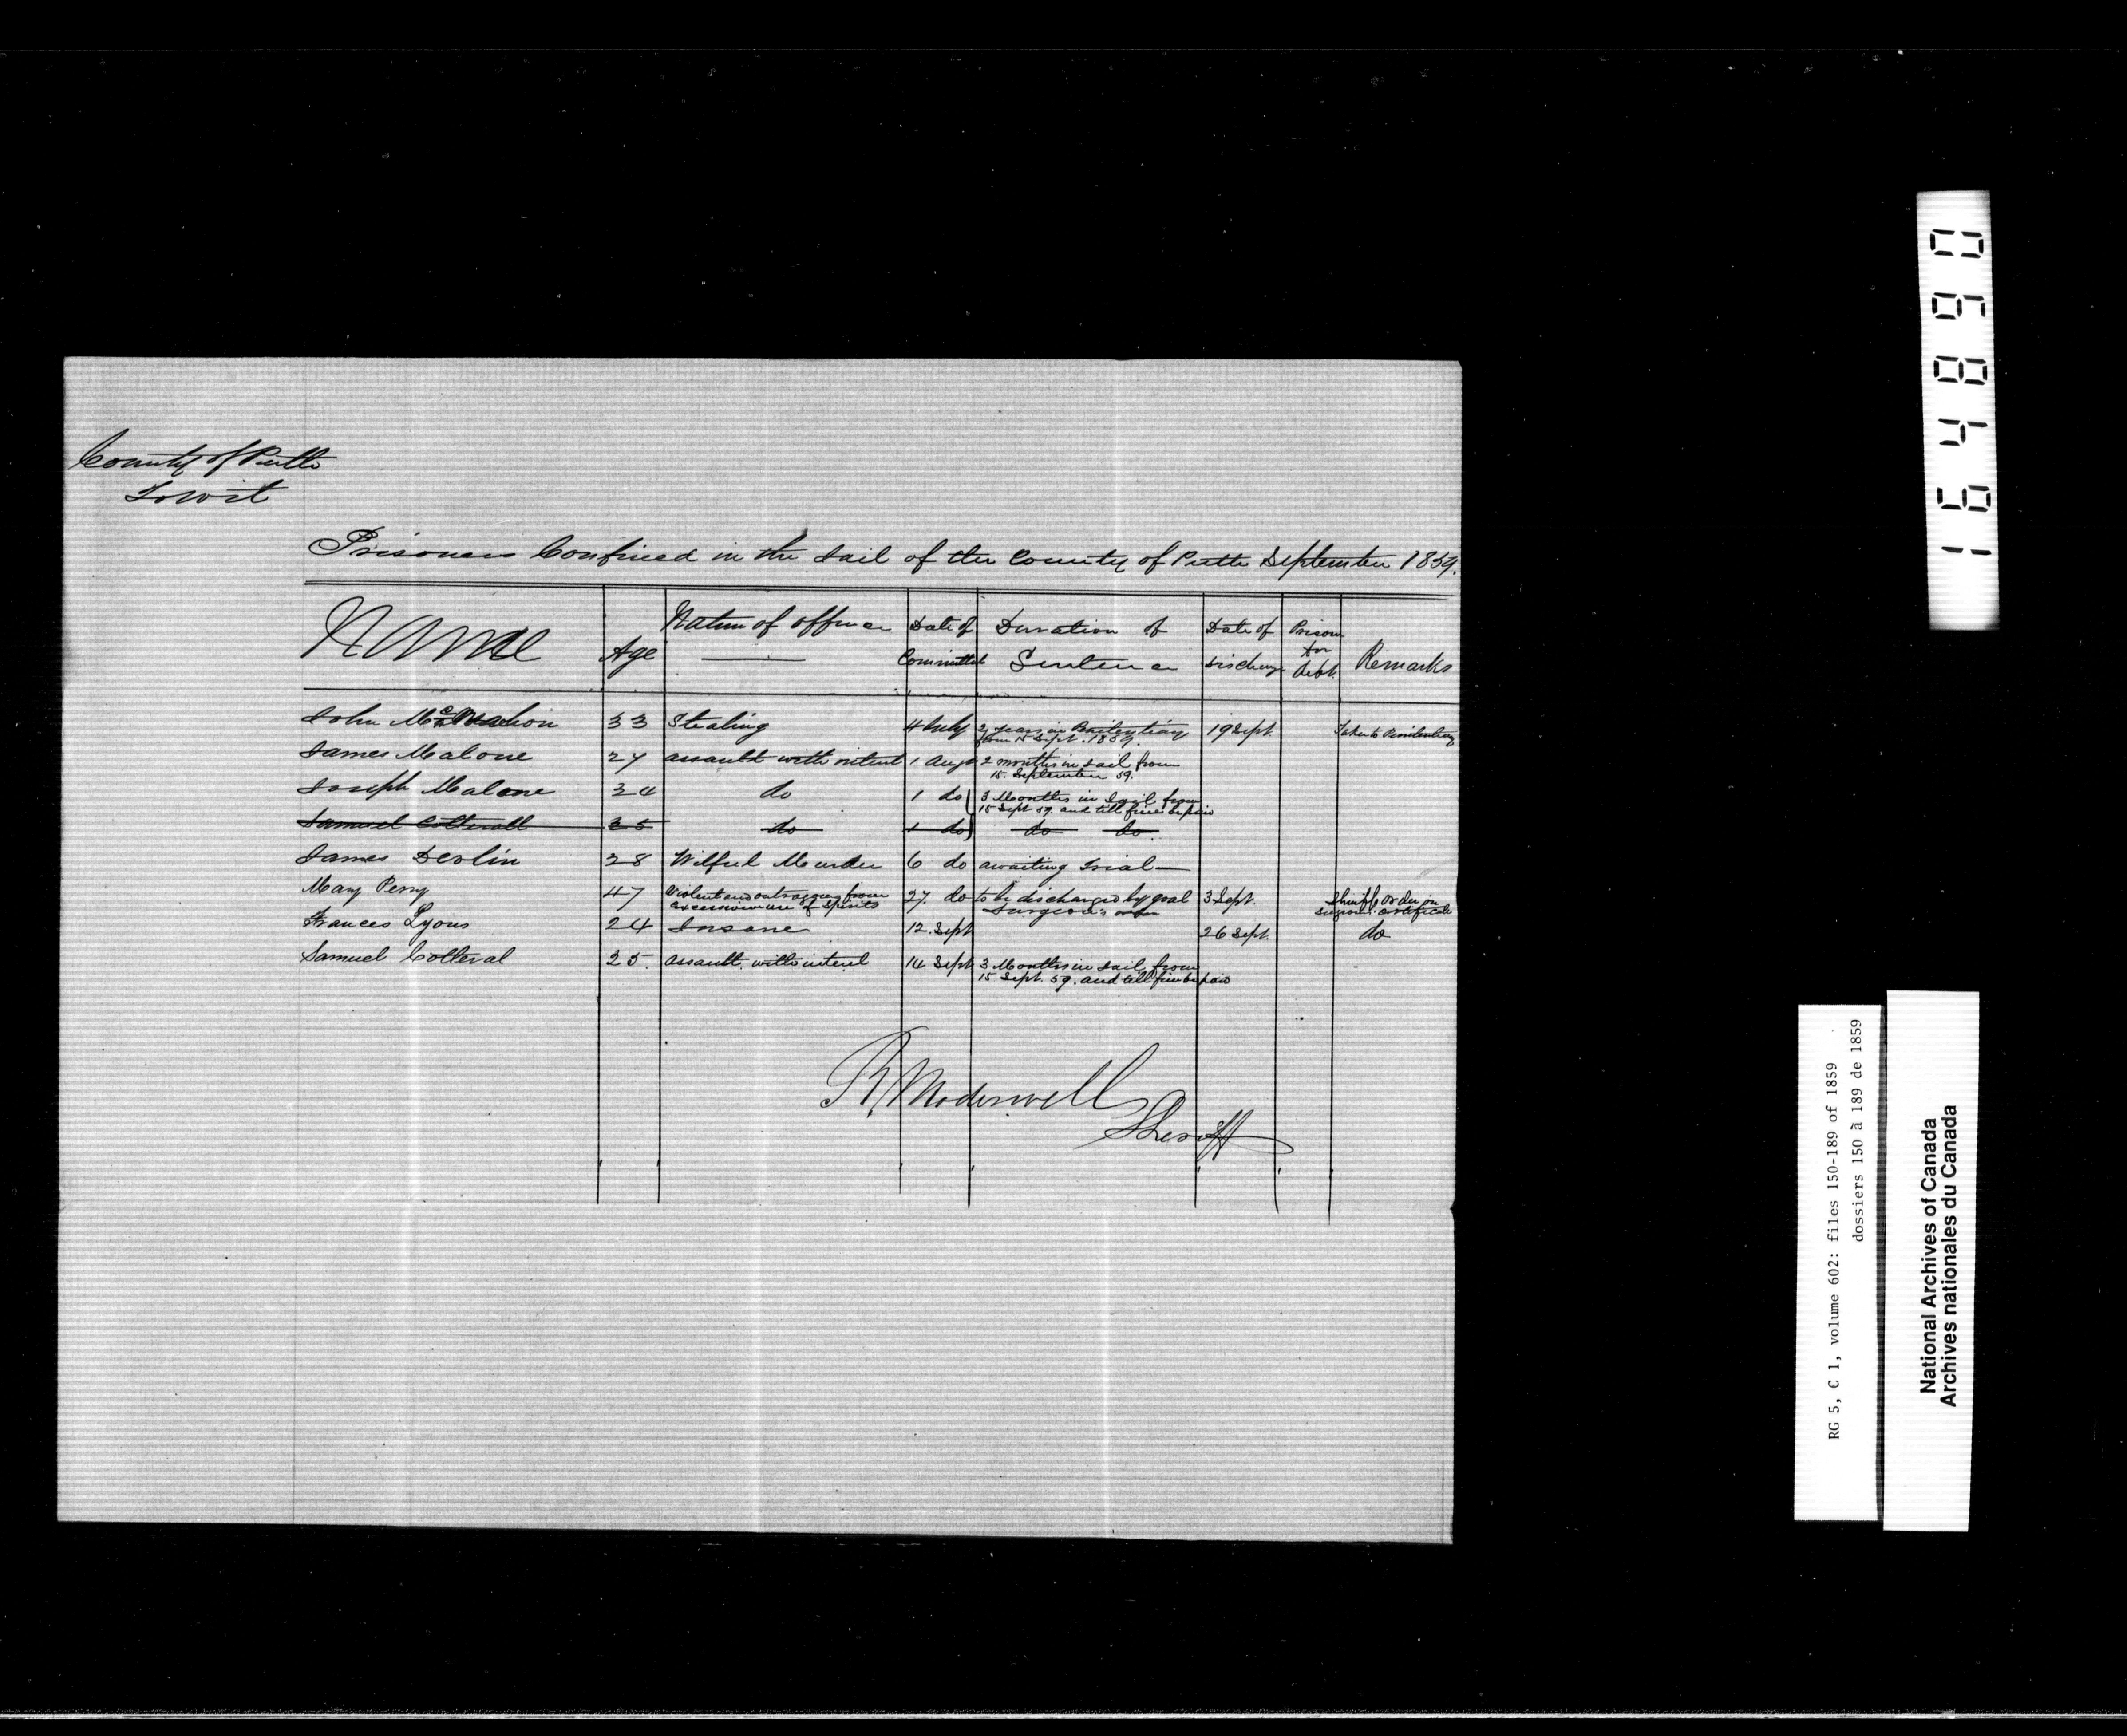 County of Perth
To wit
Prisoners Confined in the Jail of the County of Perth September 1859.
NAME Age Nature of offence Date of Committal Duration of Sentence Date of Discharge Prison for debt. Remarks
John McMahon 33 Stealing 4 July 2 years in Penitentiary from 15 Sept. 1859. 19 Sept. Taken to Penitentiary
James Malone 27 assault with intent 1 Augt 2 months in Jail from 15. September 59.
Joseph Malone 34 do 1 do 3 Months in Jail from 15 Sept 59. and till fine be paid
Samuel Cotterall 35 do 1 do do do
James Devlin 28 Wilful Murder 6 do awaiting trial
Mary Perry 47 Violent and outrageous from excessive use of Spirits 27. do to be discharged by goal Surgeon's order 3 Sept. Sheriffs order on surgeons certificate
Frances Lyons 24 Insane 12. Sept 26 Sept. do
Samuel Cotteral 25. assault. with intent 14 Sept 3 Months in Jail from 15 Sept. 59. and till fine be paid
R. Moderwell
Sheriff
164890
RG 5, C 1, volume 602: files 150-189 of 1859
dossiers 150 à 189 de 1859
National Archives of Canada
Archives nationales du Canada